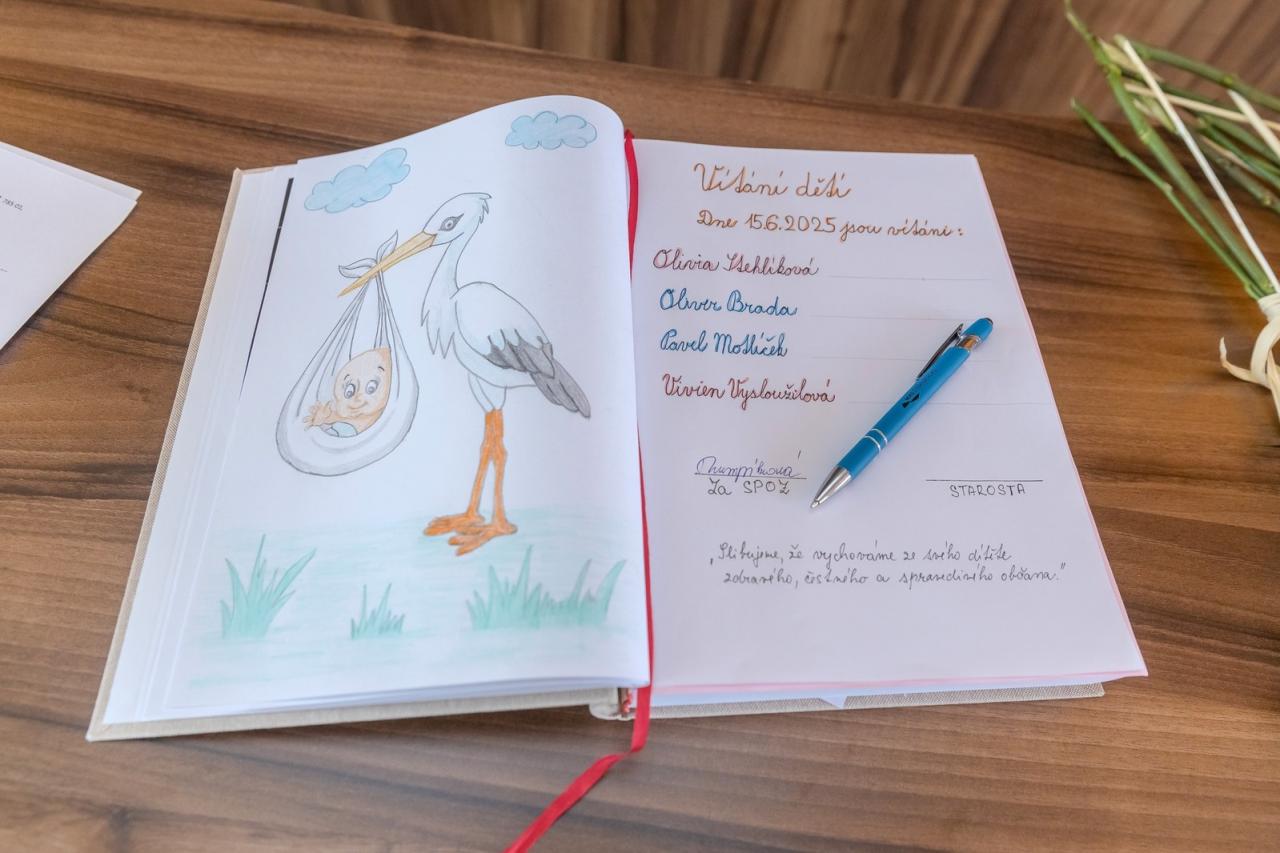 785 01,
Vítání dětí
Dne 15.6.2025 jsou vítáni:
Olivia Stehlíková
Oliver Brada
Pavel Motlíček
Vivien Vysloužilová
Za SPOZ
STAROSTA
„Slibujeme, že vychováme ze svého dítěte
zdravého, čestného a spravedlivého občana."